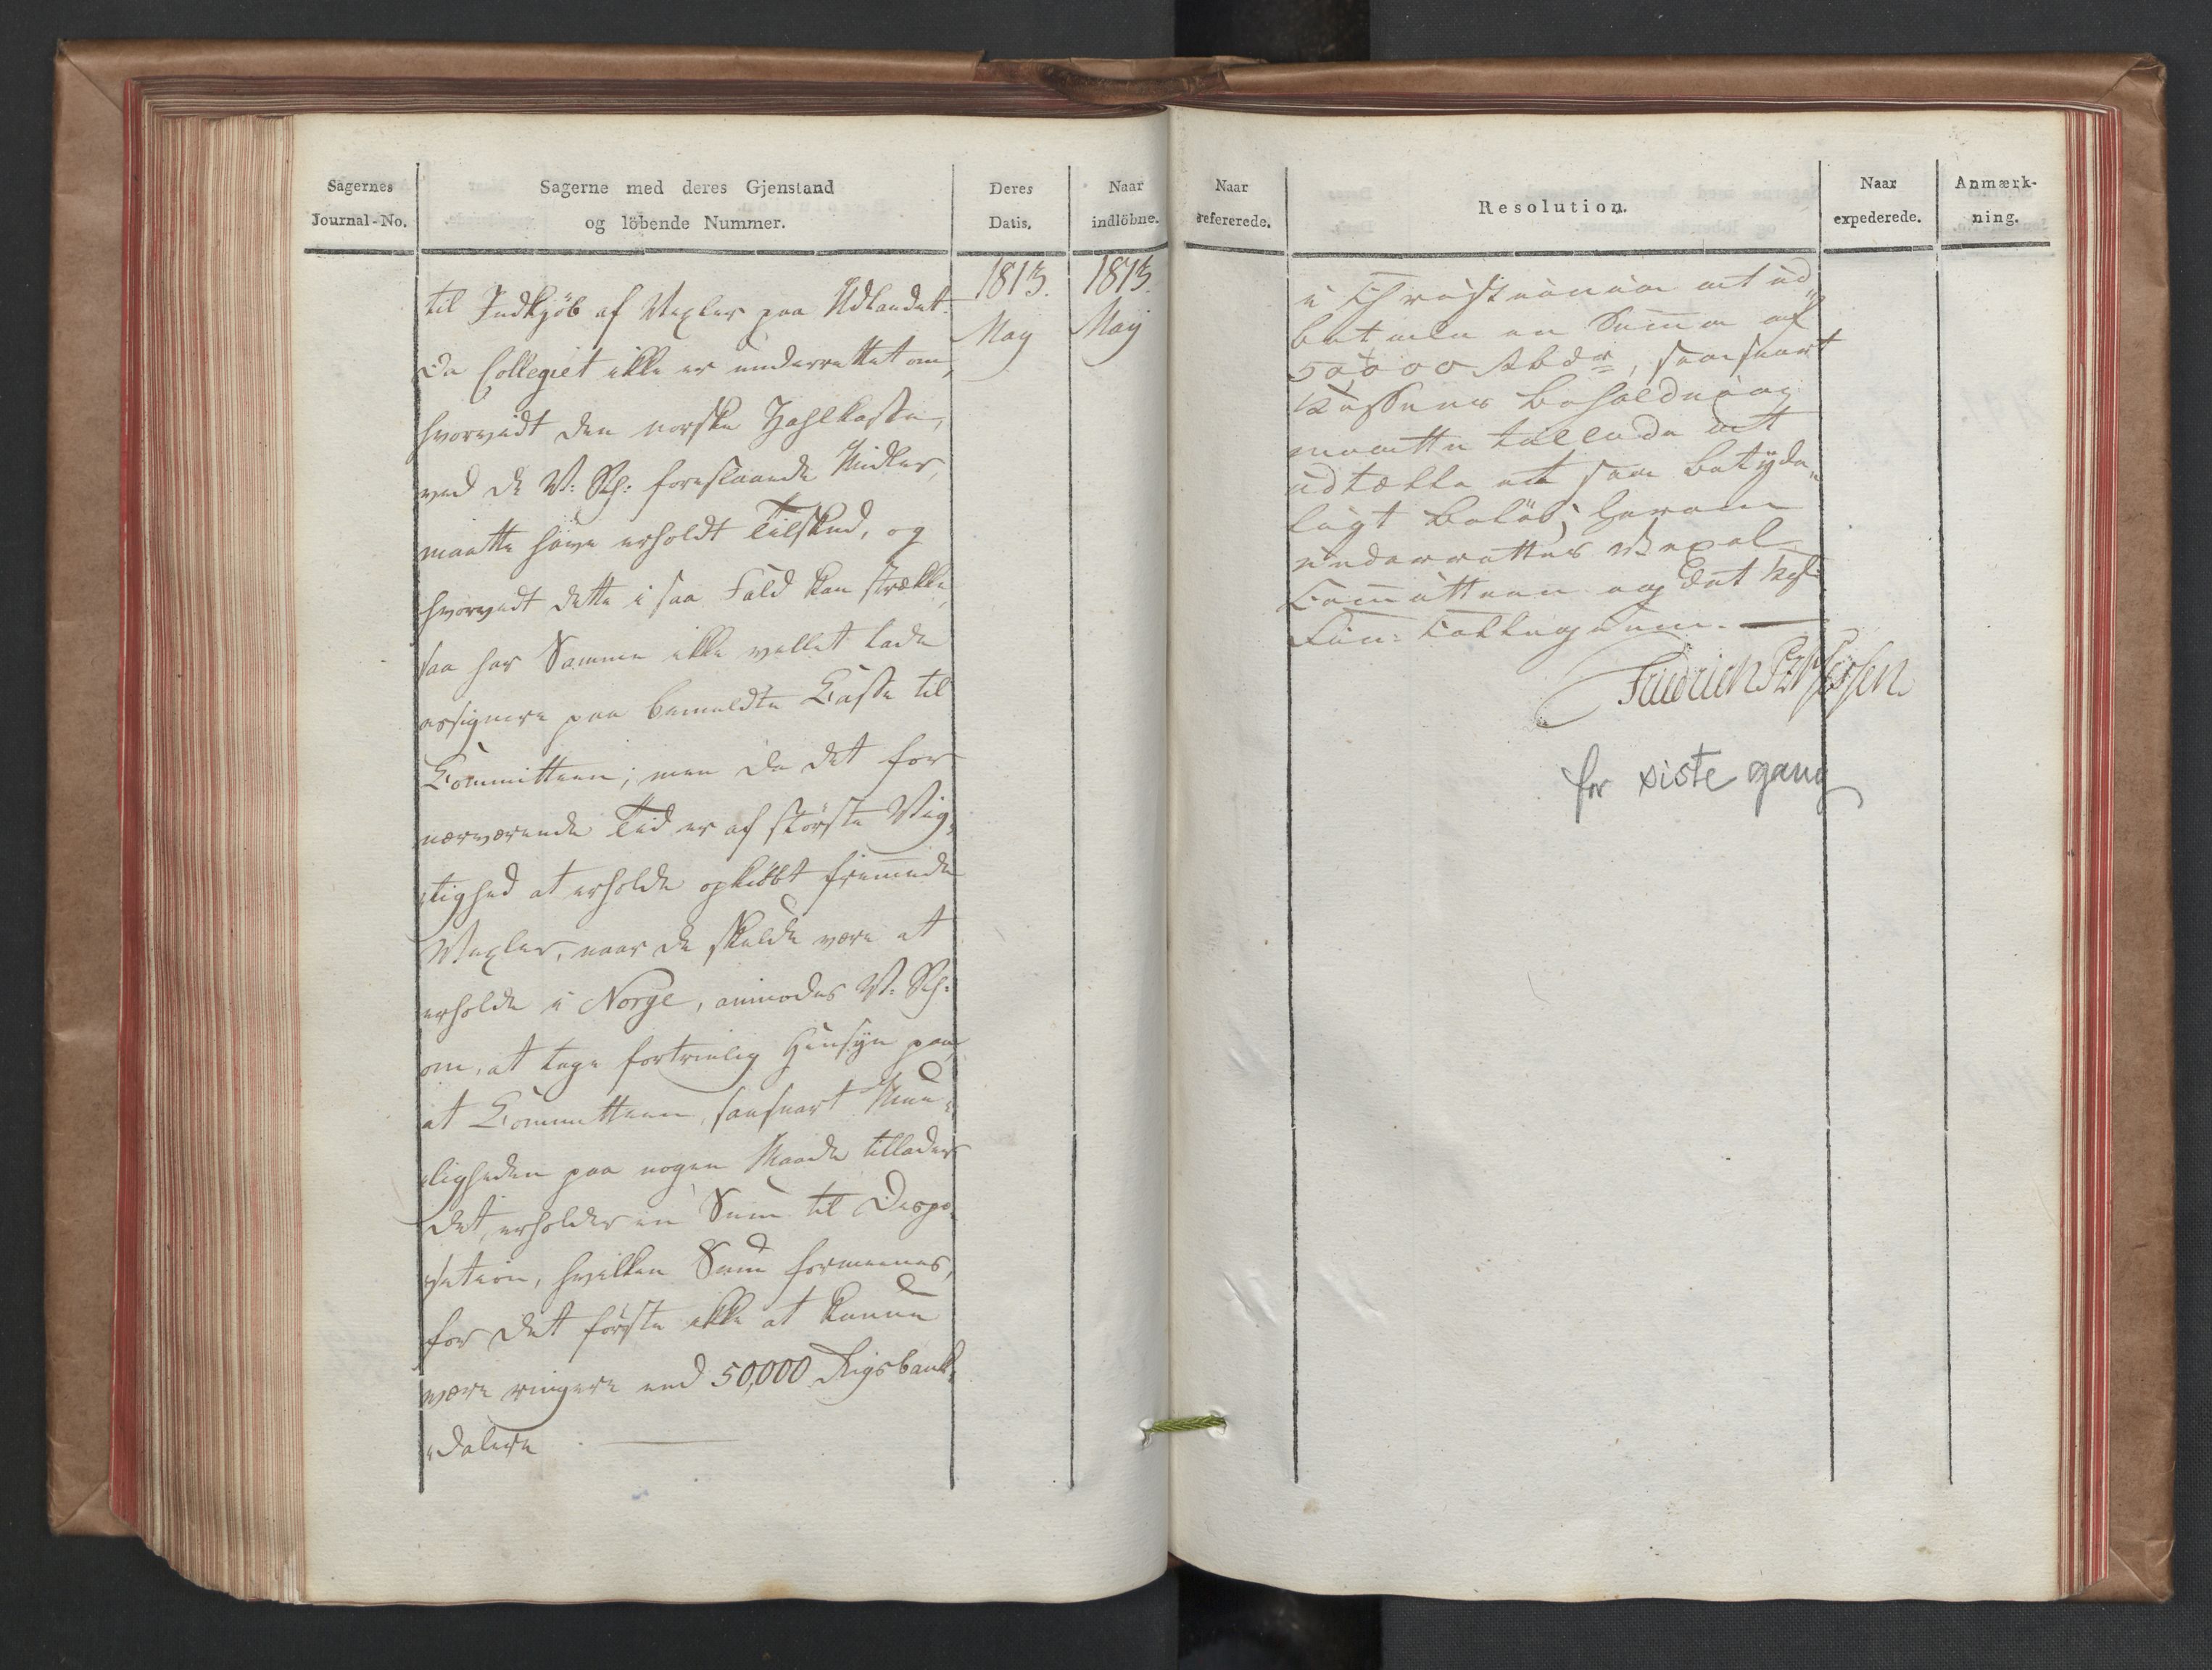 Sagernes
Journal-No.
Sagerne med deres Gjenstand
og löbende Nummer.
Deres
Datis.
Naar
indlöbne.
1813.
May
1813.
May
til Indkjöb af Vexler paa Udlandet.
Da Collegiet ikke er underrettet om,
hvorvidt den norske Zahlkasse,
ved de V: Kh: foreslaaede Midler,
maatte have erholdt Tilskud, og
hvorvidt dette i saa Fald kan strække,
saa har Samme ikke villet lade
assignere paa bemeldte Casse til
Committeen; men da det for
nærværende Tid er af störste Vig-
tighed at erholde opkiöbt fremmede
Vexler, naar de skulde være at
erholde i Norge, anmodes V: Kh:
om, at tage fortrinlig Hensyn paa,
at Committeen, saasnart Mue-
ligheden paa nogen Maade tillader
det, erholder en Sum til Dispo-
sition, hvilken Sum formeenes,
for det förste ikke at kunne
være ringere end 50,000 Rigsbank-
dalere
Naar
refererede.
Resolution.
Naar
expederede.
Anmærk-
ning.
i Christiania at ud-
betale en Summa af
50,000 Rbdr, saasnart
Kassens Beholdning
maatte tillade at
udtælle et saa betyde-
ligt Belöb; herom
underrettes Vexel
Committeen og det kgl:
Fin: Collegium.
Friedrich PzHessen
for siste gang